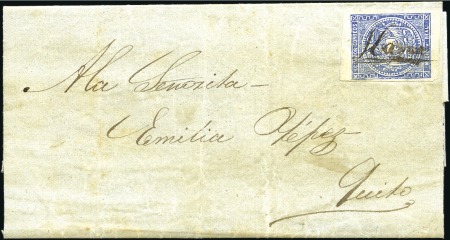 A la Señorita –
Emilia Yépez
Quito